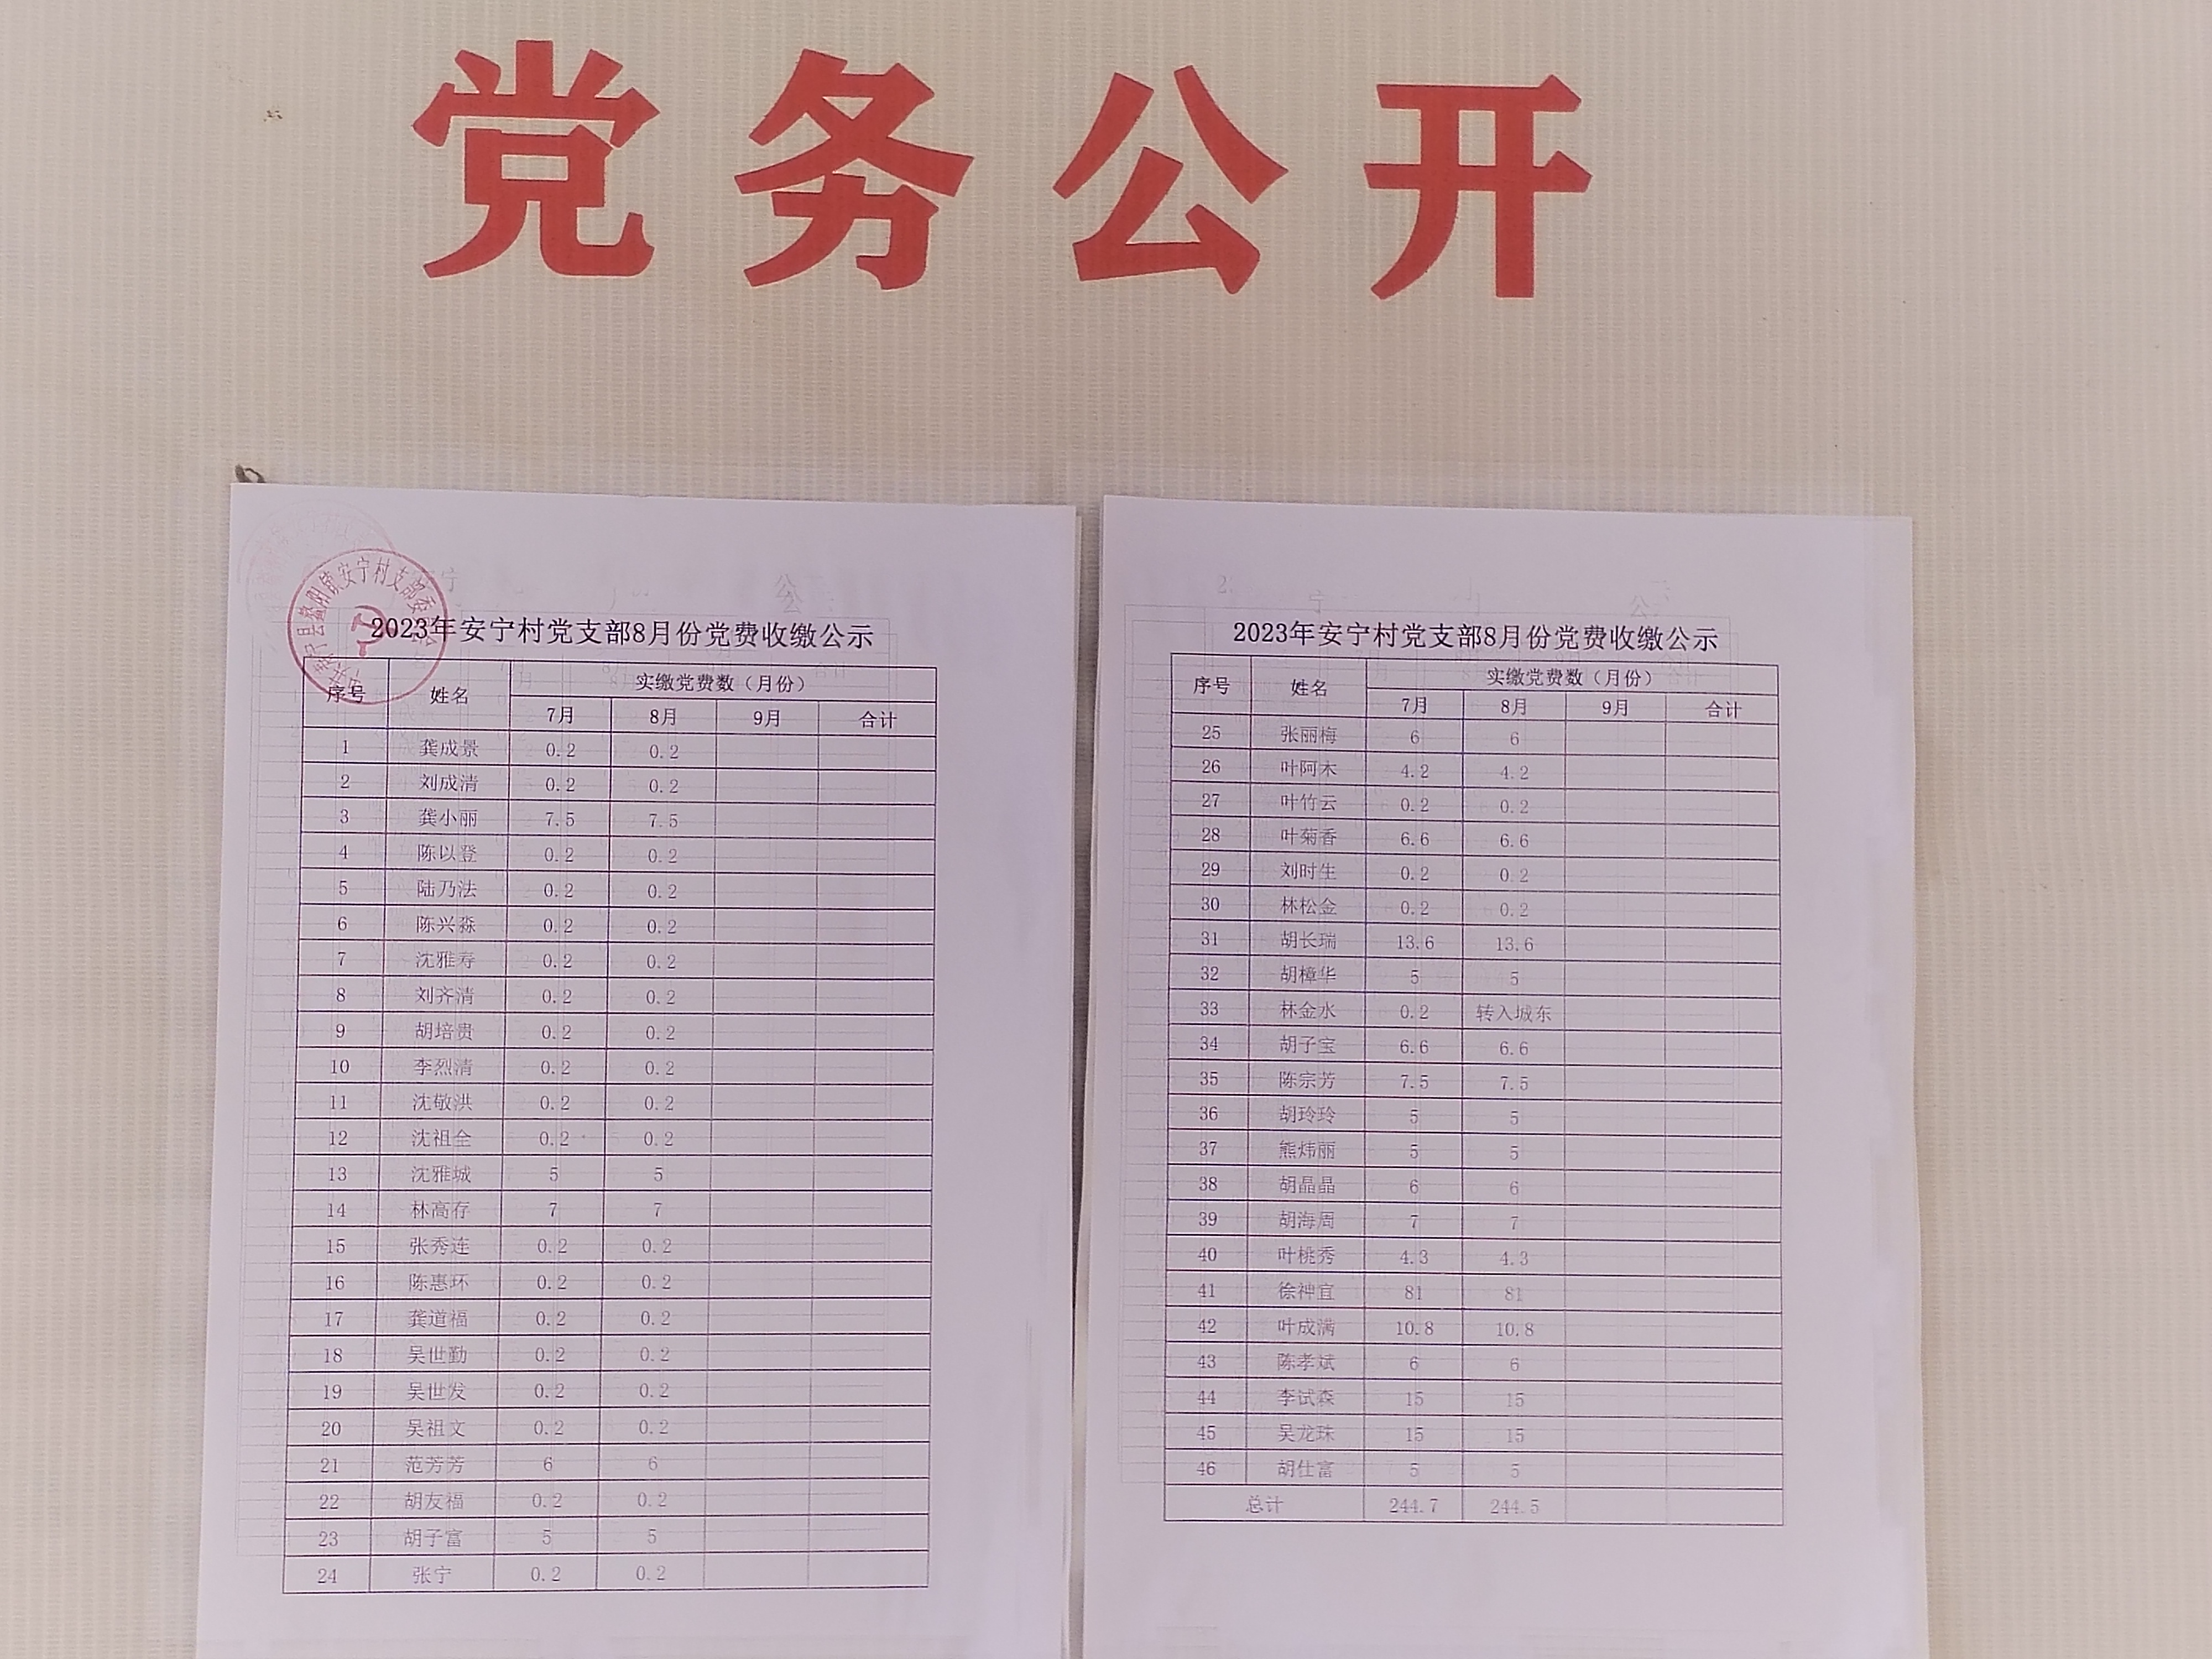 党务公开
2023年安宁村党支部8月份党费收缴公示
序号 姓名 实缴党费数（月份）
7月 8月 9月 合计
1 龚成景 0.2 0.2
2 刘成清 0.2 0.2
3 龚小丽 7.5 7.5
4 陈以登 0.2 0.2
5 陆乃法 0.2 0.2
6 陈兴淼 0.2 0.2
7 沈雅寿 0.2 0.2
8 刘齐清 0.2 0.2
9 胡培贵 0.2 0.2
10 李烈清 0.2 0.2
11 沈敬洪 0.2 0.2
12 沈祖全 0.2 0.2
13 沈雅城 5 5
14 林高存 7 7
15 张秀连 0.2 0.2
16 陈惠环 0.2 0.2
17 龚道福 0.2 0.2
18 吴世勤 0.2 0.2
19 吴世发 0.2 0.2
20 吴祖文 0.2 0.2
21 范芳芳 6 6
22 胡友福 0.2 0.2
23 胡子富 5 5
24 张宁 0.2 0.2
2023年安宁村党支部8月份党费收缴公示
序号 姓名 实缴党费数（月份）
7月 8月 9月 合计
25 张丽梅 6 6
26 叶阿木 4.2 4.2
27 叶竹云 0.2 0.2
28 叶菊香 6.6 6.6
29 刘时生 0.2 0.2
30 林松金 0.2 0.2
31 胡长瑞 13.6 13.6
32 胡樟华 5 5
33 林金水 0.2 转入城东
34 胡子宝 6.6 6.6
35 陈宗芳 7.5 7.5
36 胡玲玲 5 5
37 熊炜丽 5 5
38 胡晶晶 6 6
39 胡海周 7 7
40 叶桃秀 4.3 4.3
41 徐神宜 81 81
42 叶成满 10.8 10.8
43 陈孝斌 6 6
44 李试森 15 15
45 吴龙珠 15 15
46 胡仕富 5 5
总计 244.7 244.5